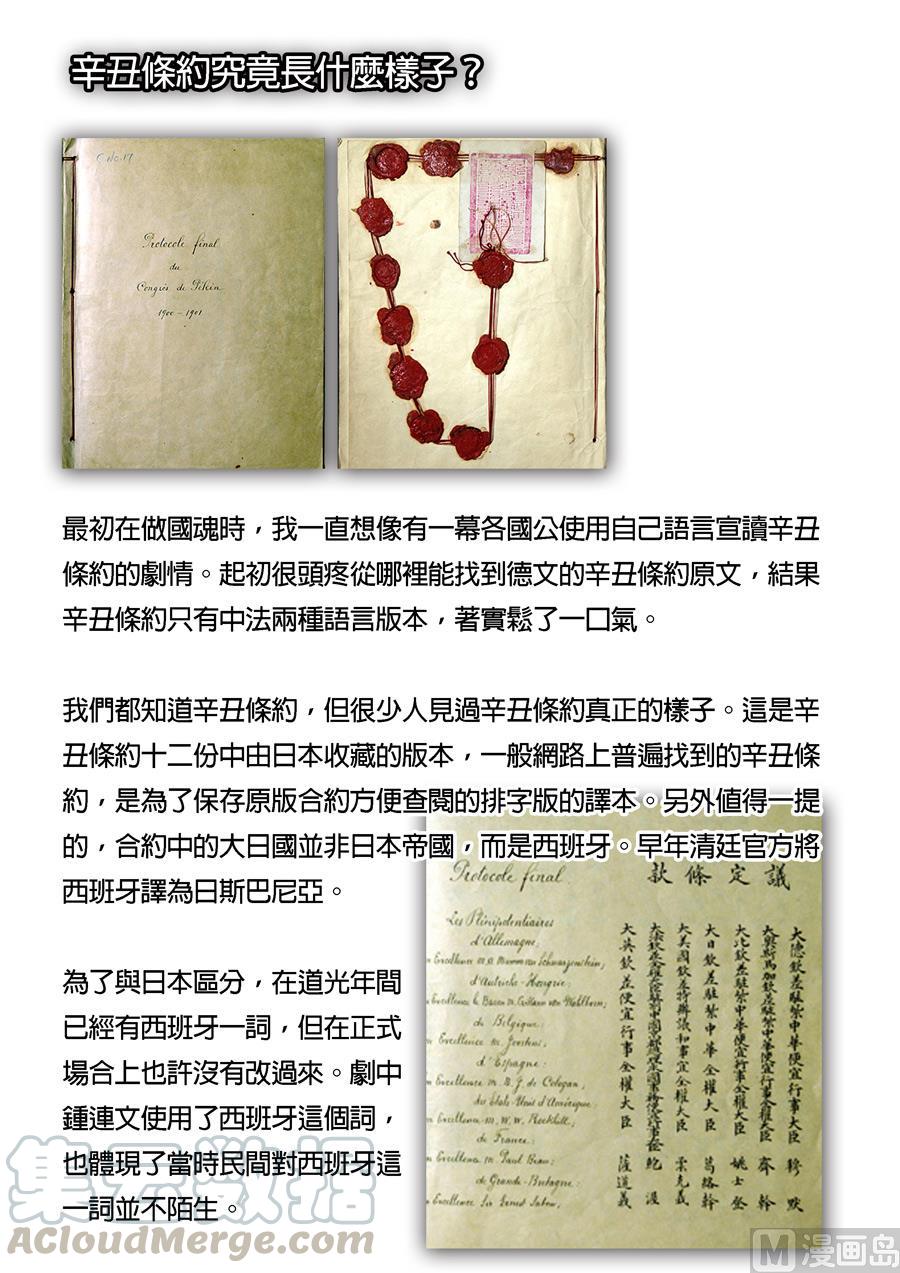 辛丑條約究竟長什麼樣子？
Protocole final
du
Congrès de Pékin
1900 - 1901
最初在做國魂時，我一直想像有一幕各國公使用自己語言宣讀辛丑
條約的劇情。起初很頭疼從哪裡能找到德文的辛丑條約原文，結果
辛丑條約只有中法兩種語言版本，著實鬆了一口氣。
我們都知道辛丑條約，但很少人見過辛丑條約真正的樣子。這是辛
丑條約十二份中由日本收藏的版本，一般網路上普遍找到的辛丑條
約，是為了保存原版合約方便查閱的排字版的譯本。另外值得一提
的，合約中的大日國並非日本帝國，而是西班牙。早年清廷官方將
西班牙譯為日斯巴尼亞。
為了與日本區分，在道光年間
已經有西班牙一詞，但在正式
場合上也許沒有改過來。劇中
鍾連文使用了西班牙這個詞，
也體現了當時民間對西班牙這
一詞並不陌生。
Protocole final
Les Plénipotentiaires
d'Allemagne,
Excellence M. A. Mumm von Schwarzenstein;
d'Autriche-Hongrie:
Excellence le Baron M. Czikann von Wahlborn;
de Belgique:
Excellence M. Joostens;
d'Espagne:
Excellence M. B. J. de Cologan;
des États-Unis d'Amérique:
Excellence M. W. W. Rockhill;
de France:
Excellence M. Paul Beau;
de Grande-Bretagne:
Excellence Sir Ernest Satow;
議定條款
大德欽差駐紮中華便宜行事大臣 穆默
大奧斯馬加欽差駐紮中華便宜行事全權大臣 齊幹
大比欽差駐紮中華便宜行事全權大臣 姚士登
大日欽差駐紮中華全權大臣 葛絡幹
大美國欽差特辦議和事宜全權大臣 柔克義
大英欽差便宜行事全權大臣 薩道義
集云数据
ACloudMerge.com
M 漫画岛